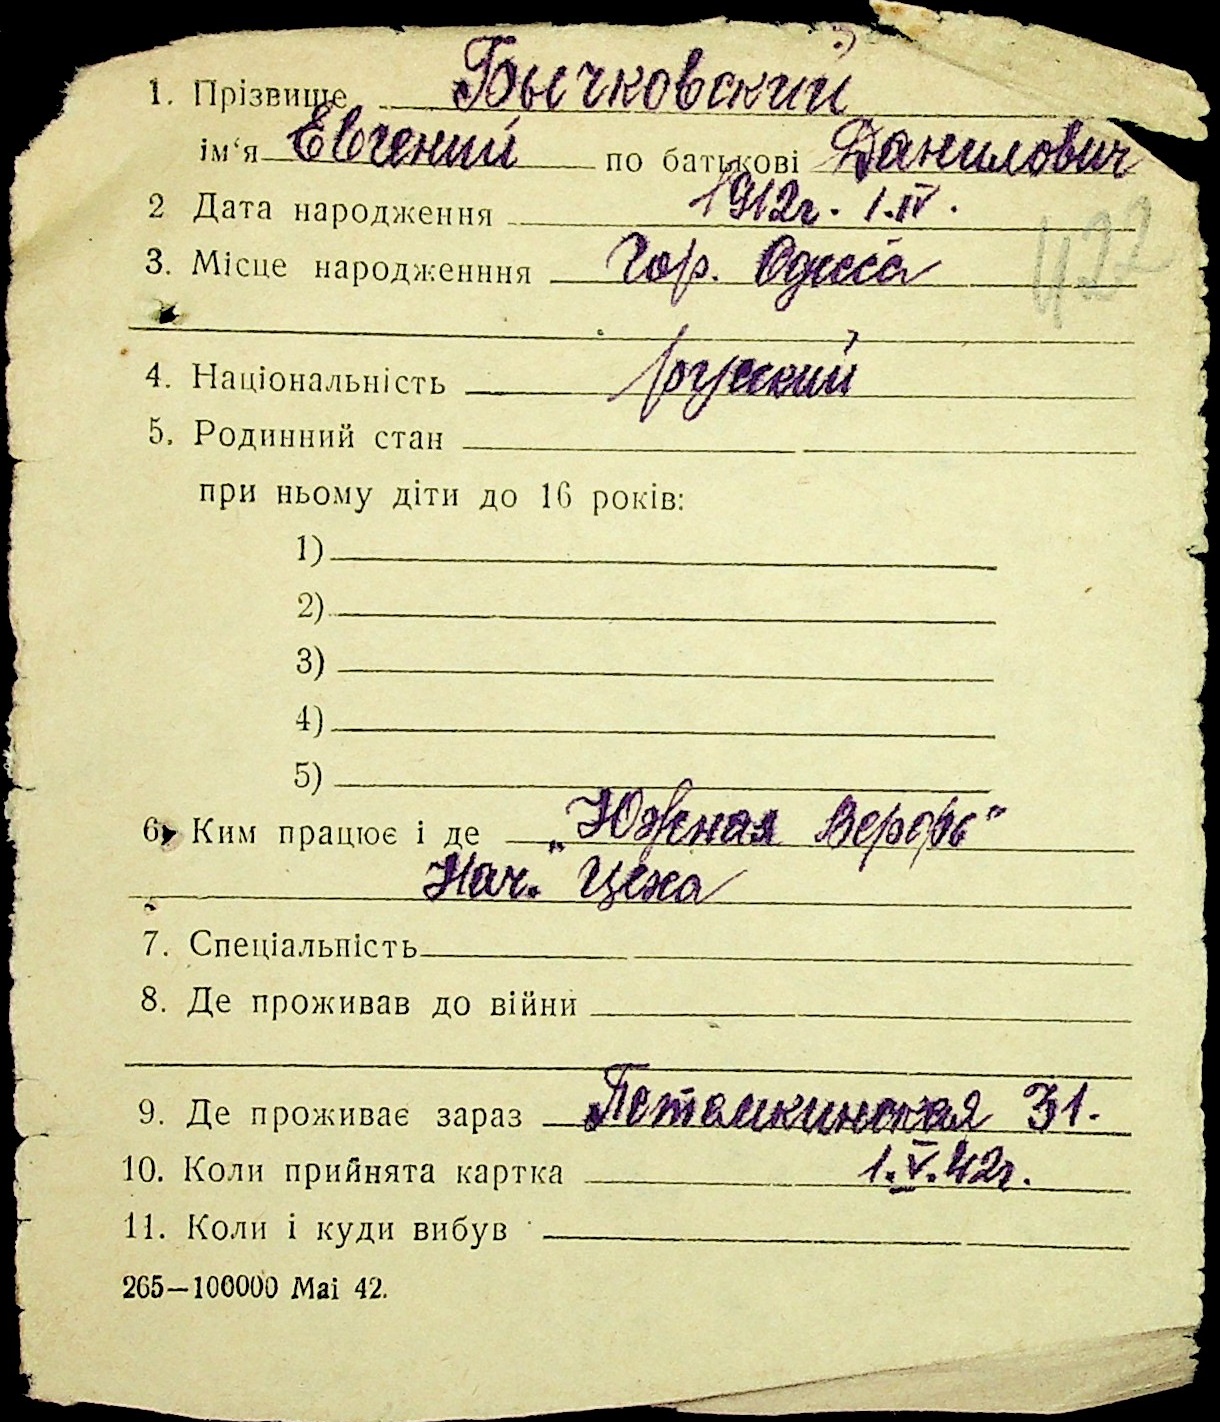 1. Прізвище Бычковский
ім‘я Евгений по батькові Данилович
2 Дата народження 1912г. 1.IV.
3. Місце народженння Гор. Одесса
422
4. Національність русский
5. Родинний стан
при ньому діти до 16 років:
1)
2)
3)
4)
5)
6. Ким працює і де „Южная Верфь“
Нач. Цеха
7. Спеціальність
8. Де проживав до війни
9. Де проживає зараз Потемкинская 31.
10. Коли прийнята картка 1.V.42г.
11. Коли і куди вибув
265—100000 Маі 42.